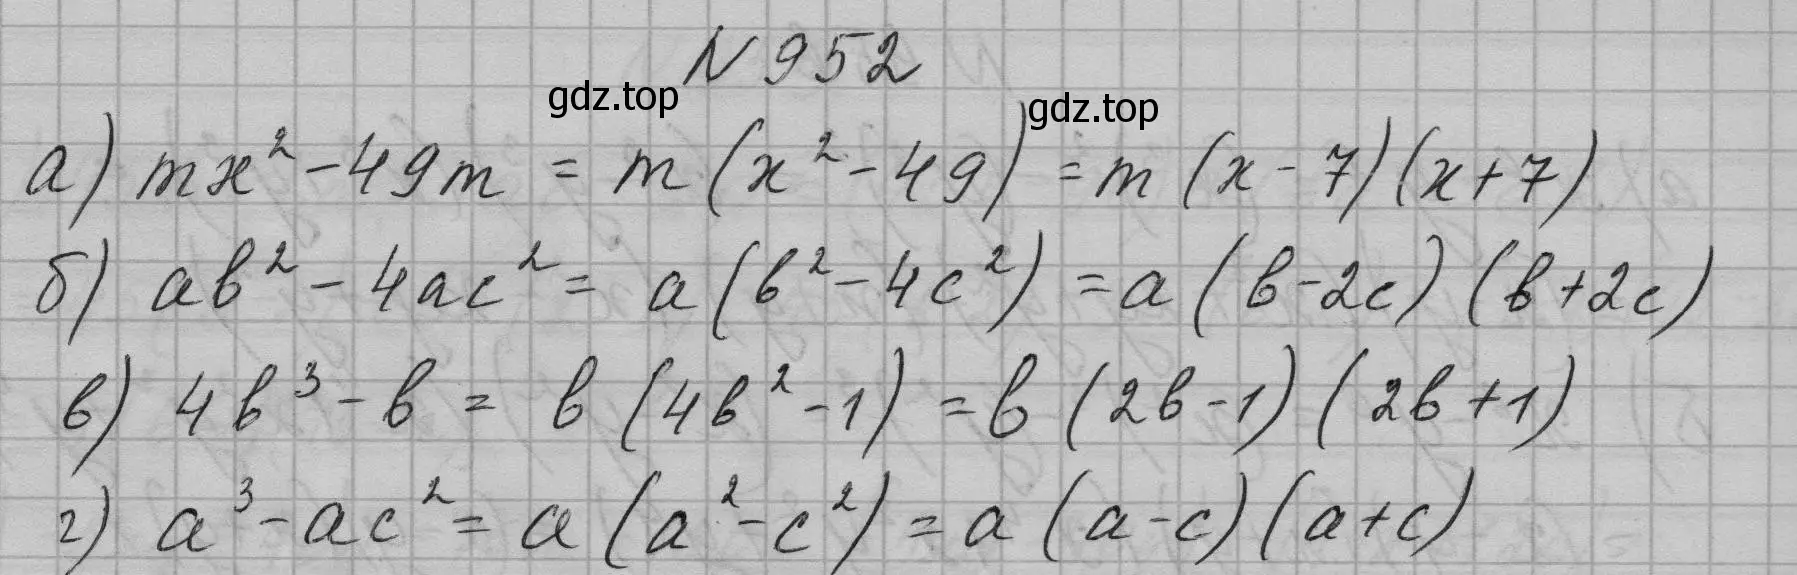 N 952
gdz.top
gdz.top
а) mx² - 49m = m (x² - 49) = m (x - 7)(x + 7)
б) ab² - 4ac² = a (b² - 4c²) = a (b - 2c) (b + 2c)
в) 4b³ - b = b (4b² - 1) = b (2b - 1) (2b + 1)
г) a³ - ac² = a (a² - c²) = a (a - c) (a + c)